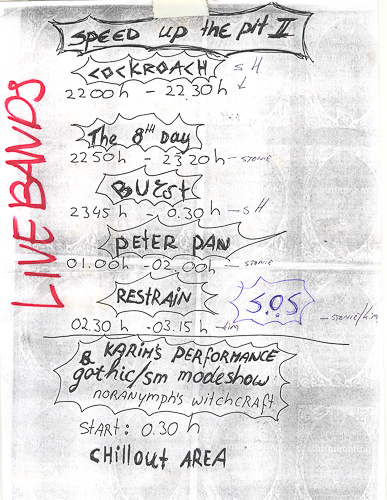 SPEED UP the PIT II
COCKROACH S H
22 00 h - 22.30 h
The 8th DAY
22 50 h - 23 20 h - STONIE
BUEST
23 45 h - 0.30 h - S H
PETER PAN
01.00 h - 02.00 h - STONIE
RESTRAIN S.O.S
02.30 h - 03.15 h - kim - STONIE/kim
LIVE BANDS
& KARIM'S PERFORMANCE
gothic/sm modeshow
NORANYMPH'S WITCHCRAFT
START: 0.30 h
CHILLOUT AREA